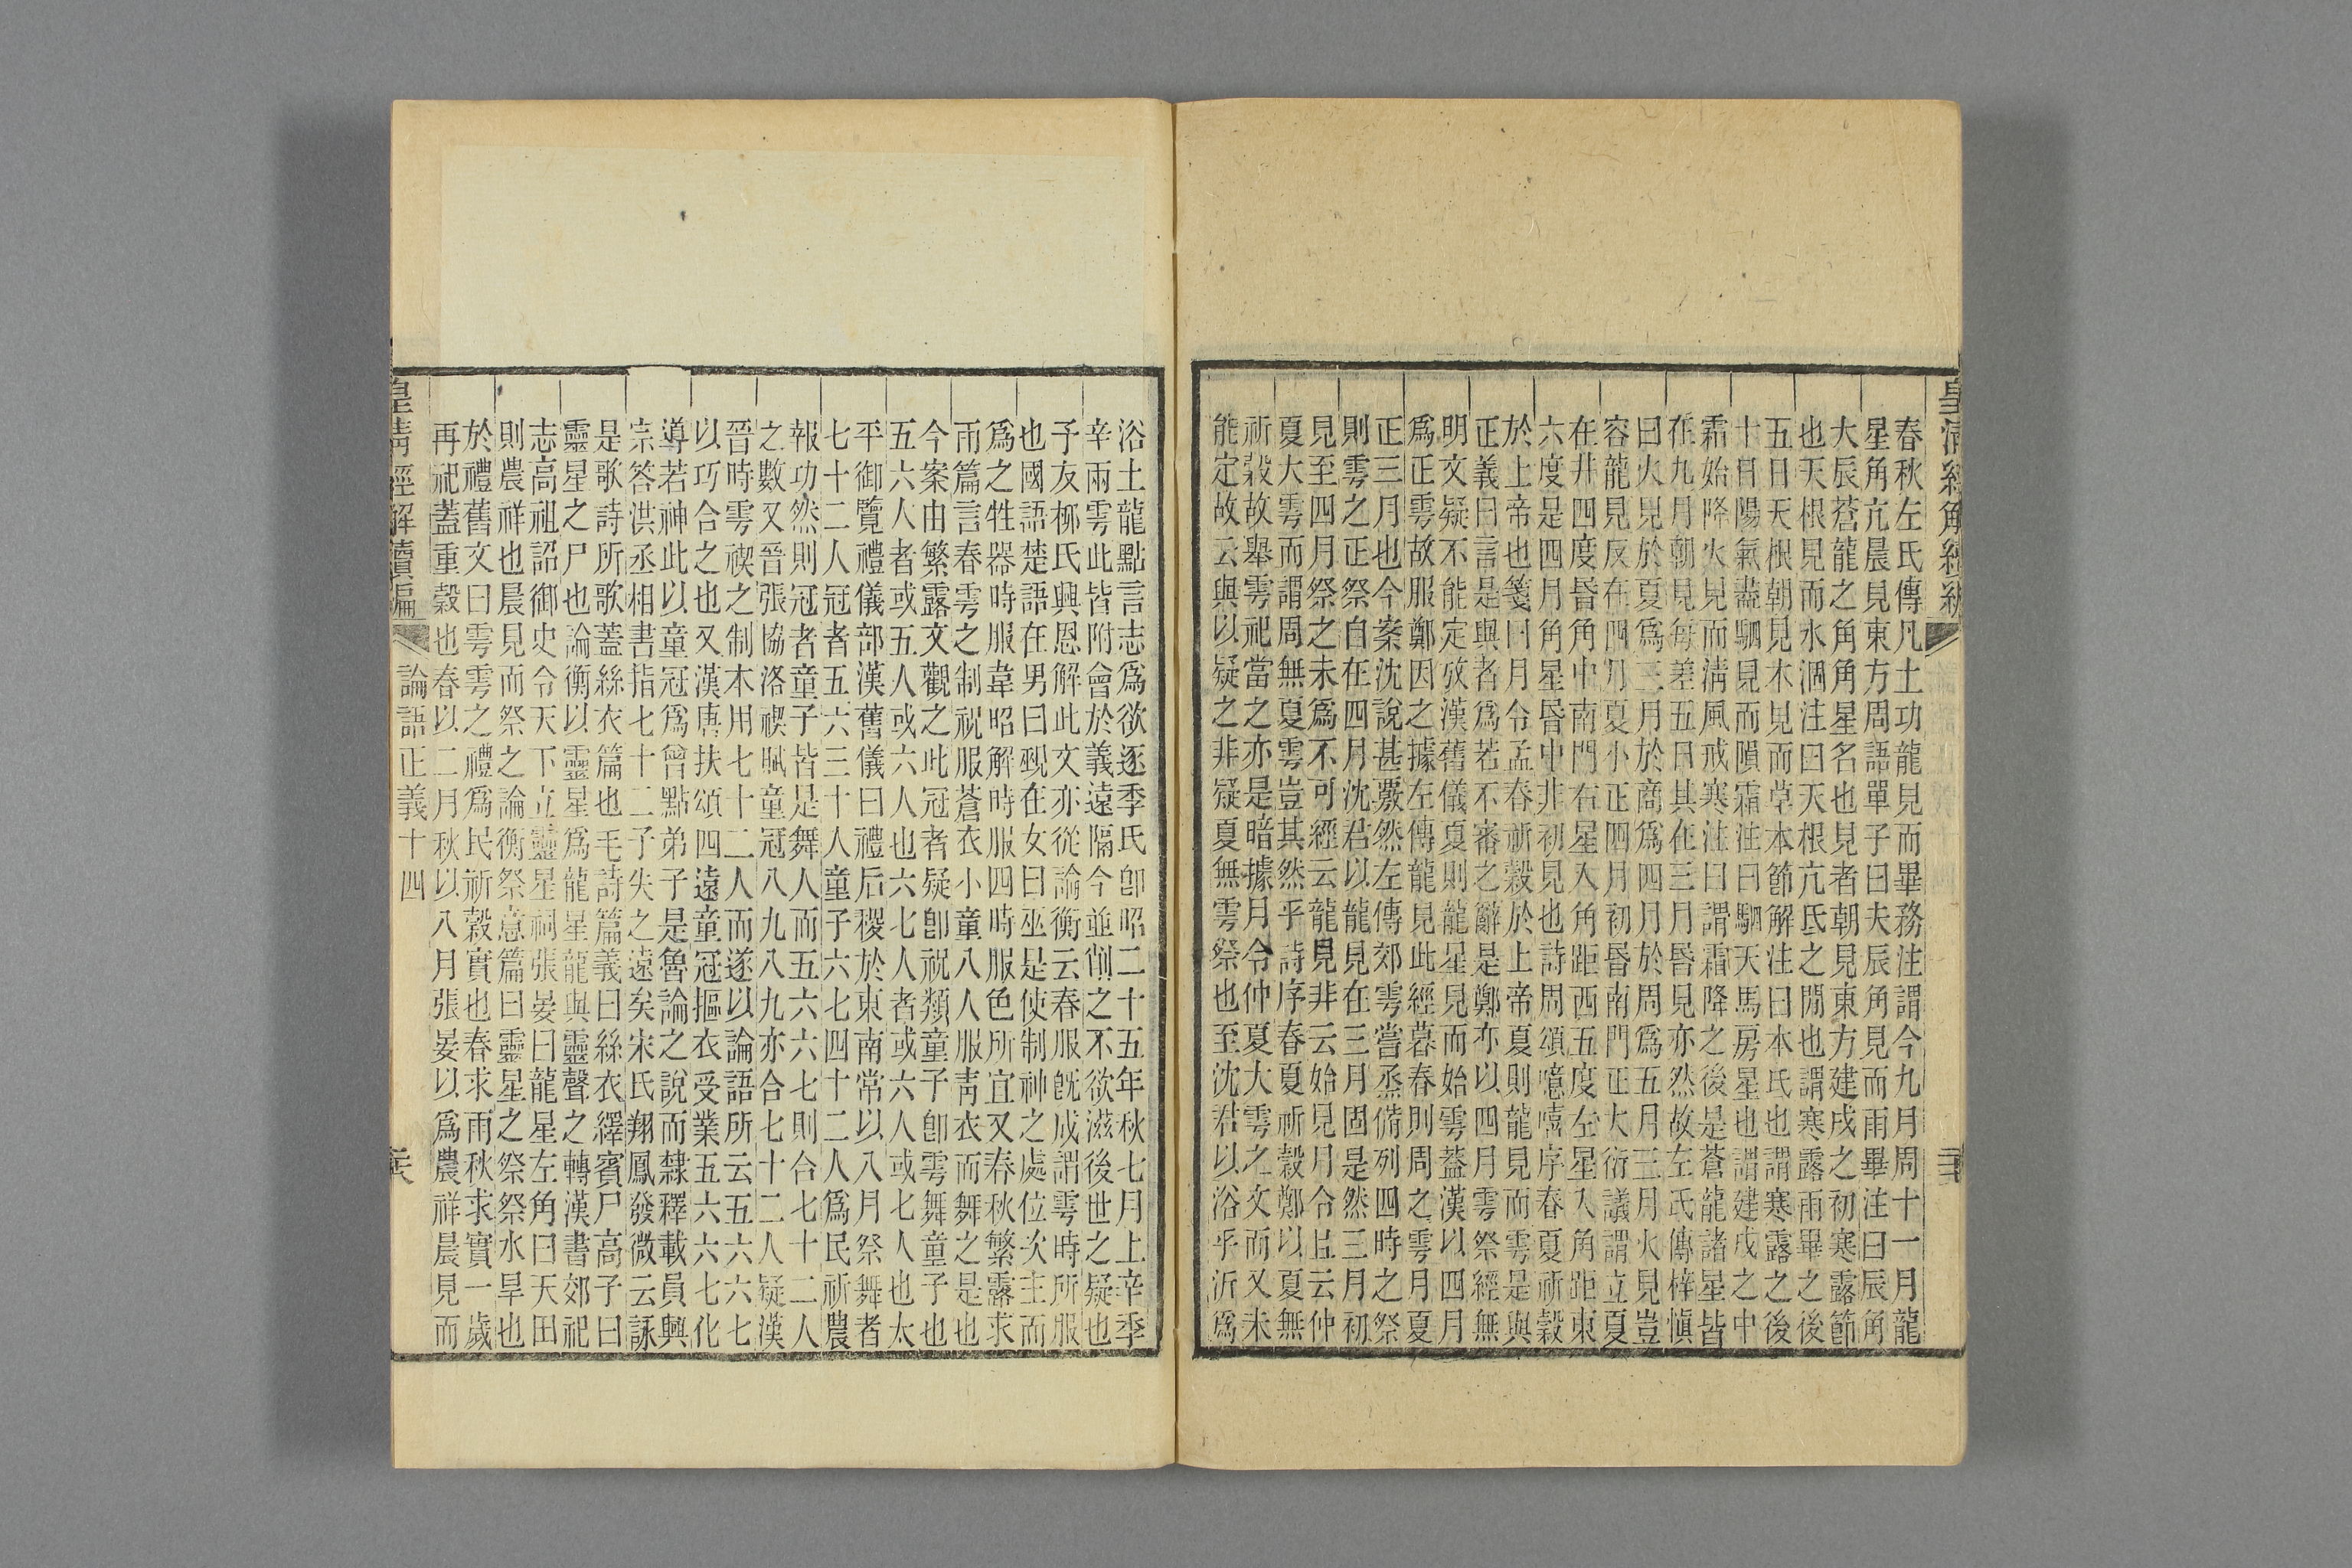 春秋左氏傳凡土功龍見而畢務注謂今九月周十一月龍
星角亢晨見東方周語單子曰夫辰角見而雨畢注曰辰角
大辰蒼龍之角角星名也見者朝見東方建戌之初寒露節
也天根見而水涸注曰天根亢氐之閒也謂寒露雨畢之後
五日天根朝見木見而草木節解注曰本氐也謂寒露之後
十日陽氣盡駟見而隕霜注曰駟天馬房星也謂建戌之中
霜始降火見而淸風戒寒注曰謂霜降之後是蒼龍諸星皆
在九月朝見每差五日其在三月昏見亦然故左氏傳梓愼
曰火見於夏爲三月於商爲四月於周爲五月三月火見豈
容龍見反在四月夏小正四月初昏南門正大衍議謂立夏
在井四度昏角中南門右星入角距西五度左星入角距東
六度是四月角星昏中非初見也詩周頌噫嘻序春夏祈穀
於上帝也箋曰月令孟春祈穀於上帝夏則龍見而雩是與
正義曰言是與者爲若不審之辭是鄭亦以四月雩祭經無
明文疑不能定攷漢舊儀夏則龍星見而始雩葢漢以四月
爲正雩故服鄭因之據左傳龍見此經暮春則周之雩月夏
正三月也今案沈說甚覈然左傳郊雩嘗烝備列四時之祭
則雩之正祭自在四月沈君以龍見在三月固是然三月初
見至四月祭之未爲不可經云龍見非云始見月令且云仲
夏大雩而謂周無夏雩豈其然乎詩序春夏祈穀鄭以夏無
祈穀故舉雩祀當之亦是暗據月令仲夏大雩之文而又未
能定故云與以疑之非疑夏無雩祭也至沈君以浴乎沂爲
浴土龍點言志爲欲逐季氏卽昭二十五年秋七月上辛季
辛兩雩此皆附會於義遠隔今並削之不欲滋後世之疑也
子友柳氏興恩解此文亦從論衡云春服旣成謂雩時所服
也國語楚語在男曰覡在女曰巫是使制神之處位次主而
爲之牲器時服韋昭解時服四時服色所宜又春秋繁露求
雨篇言春雩之制祝服蒼衣小童八人服靑衣而舞之是也
今案由繁露文觀之此冠者疑卽祝類童子卽雩舞童子也
五六人者或五人或六人也六七人者或六人或七人也太
平御覽禮儀部漢舊儀曰禮后稷於東南常以八月祭舞者
七十二人冠者五六三十人童子六七四十二人爲民祈農
報功然則冠者童子皆是舞人而五六六七則合七十二人
之數又晉張協洛禊賦童冠八九八九亦合七十二人疑漢
晉時雩禊之制木用七十二人而遂以論語所云五六六七
以巧合之也又漢唐扶頌四遠童冠摳衣受業五六六七化
導若神此以童冠爲曾點弟子是魯論之說而隸釋載員興
宗答洪丞相書指七十二子失之遠矣宋氏翔鳳發微云詠
是歌詩所歌蓋絲衣篇也毛詩篇義曰絲衣繹賓尸高子曰
靈星之尸也論衡以靈星爲龍星龍與靈聲之轉漢書郊祀
志高祖詔御史令天下立靈星祠張晏曰龍星左角曰天田
則農祥也晨見而祭之論衡祭意篇曰靈星之祭祭水旱也
於禮舊文曰雩雩之禮爲民祈穀實也春求雨秋求實一歲
再祀蓋重穀也春以二月秋以八月張晏以爲農祥晨見而
皇淸經解續編
論語正義十四